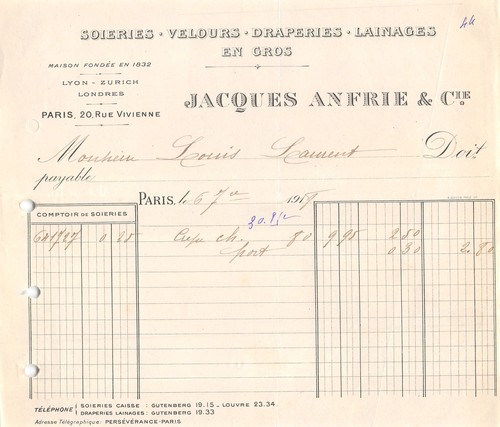 44
SOIERIES · VELOURS · DRAPERIES · LAINAGES
EN GROS
MAISON FONDÉE EN 1832
LYON - ZURICH
LONDRES
PARIS, 20, RUE VIVIENNE
JACQUES ANFRIE & CIE
Monsieur Louis Laurent Doit
payable
PARIS, le 6 7bre 191
COMPTOIR DE SOIERIES
0 25 Crepe ch. 80 9 95 2 50
port 0 30 2.80
TÉLÉPHONE { SOIERIES CAISSE : GUTENBERG 19.15 _ LOUVRE 23.34.
DRAPERIES LAINAGES : GUTENBERG 19.33
Adresse Télégraphique : PERSÉVÉRANCE-PARIS